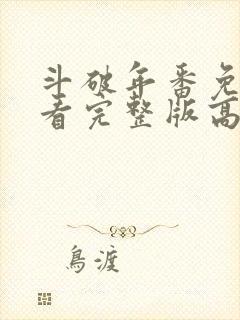 斗破年番免
看完整版高
鳥渡